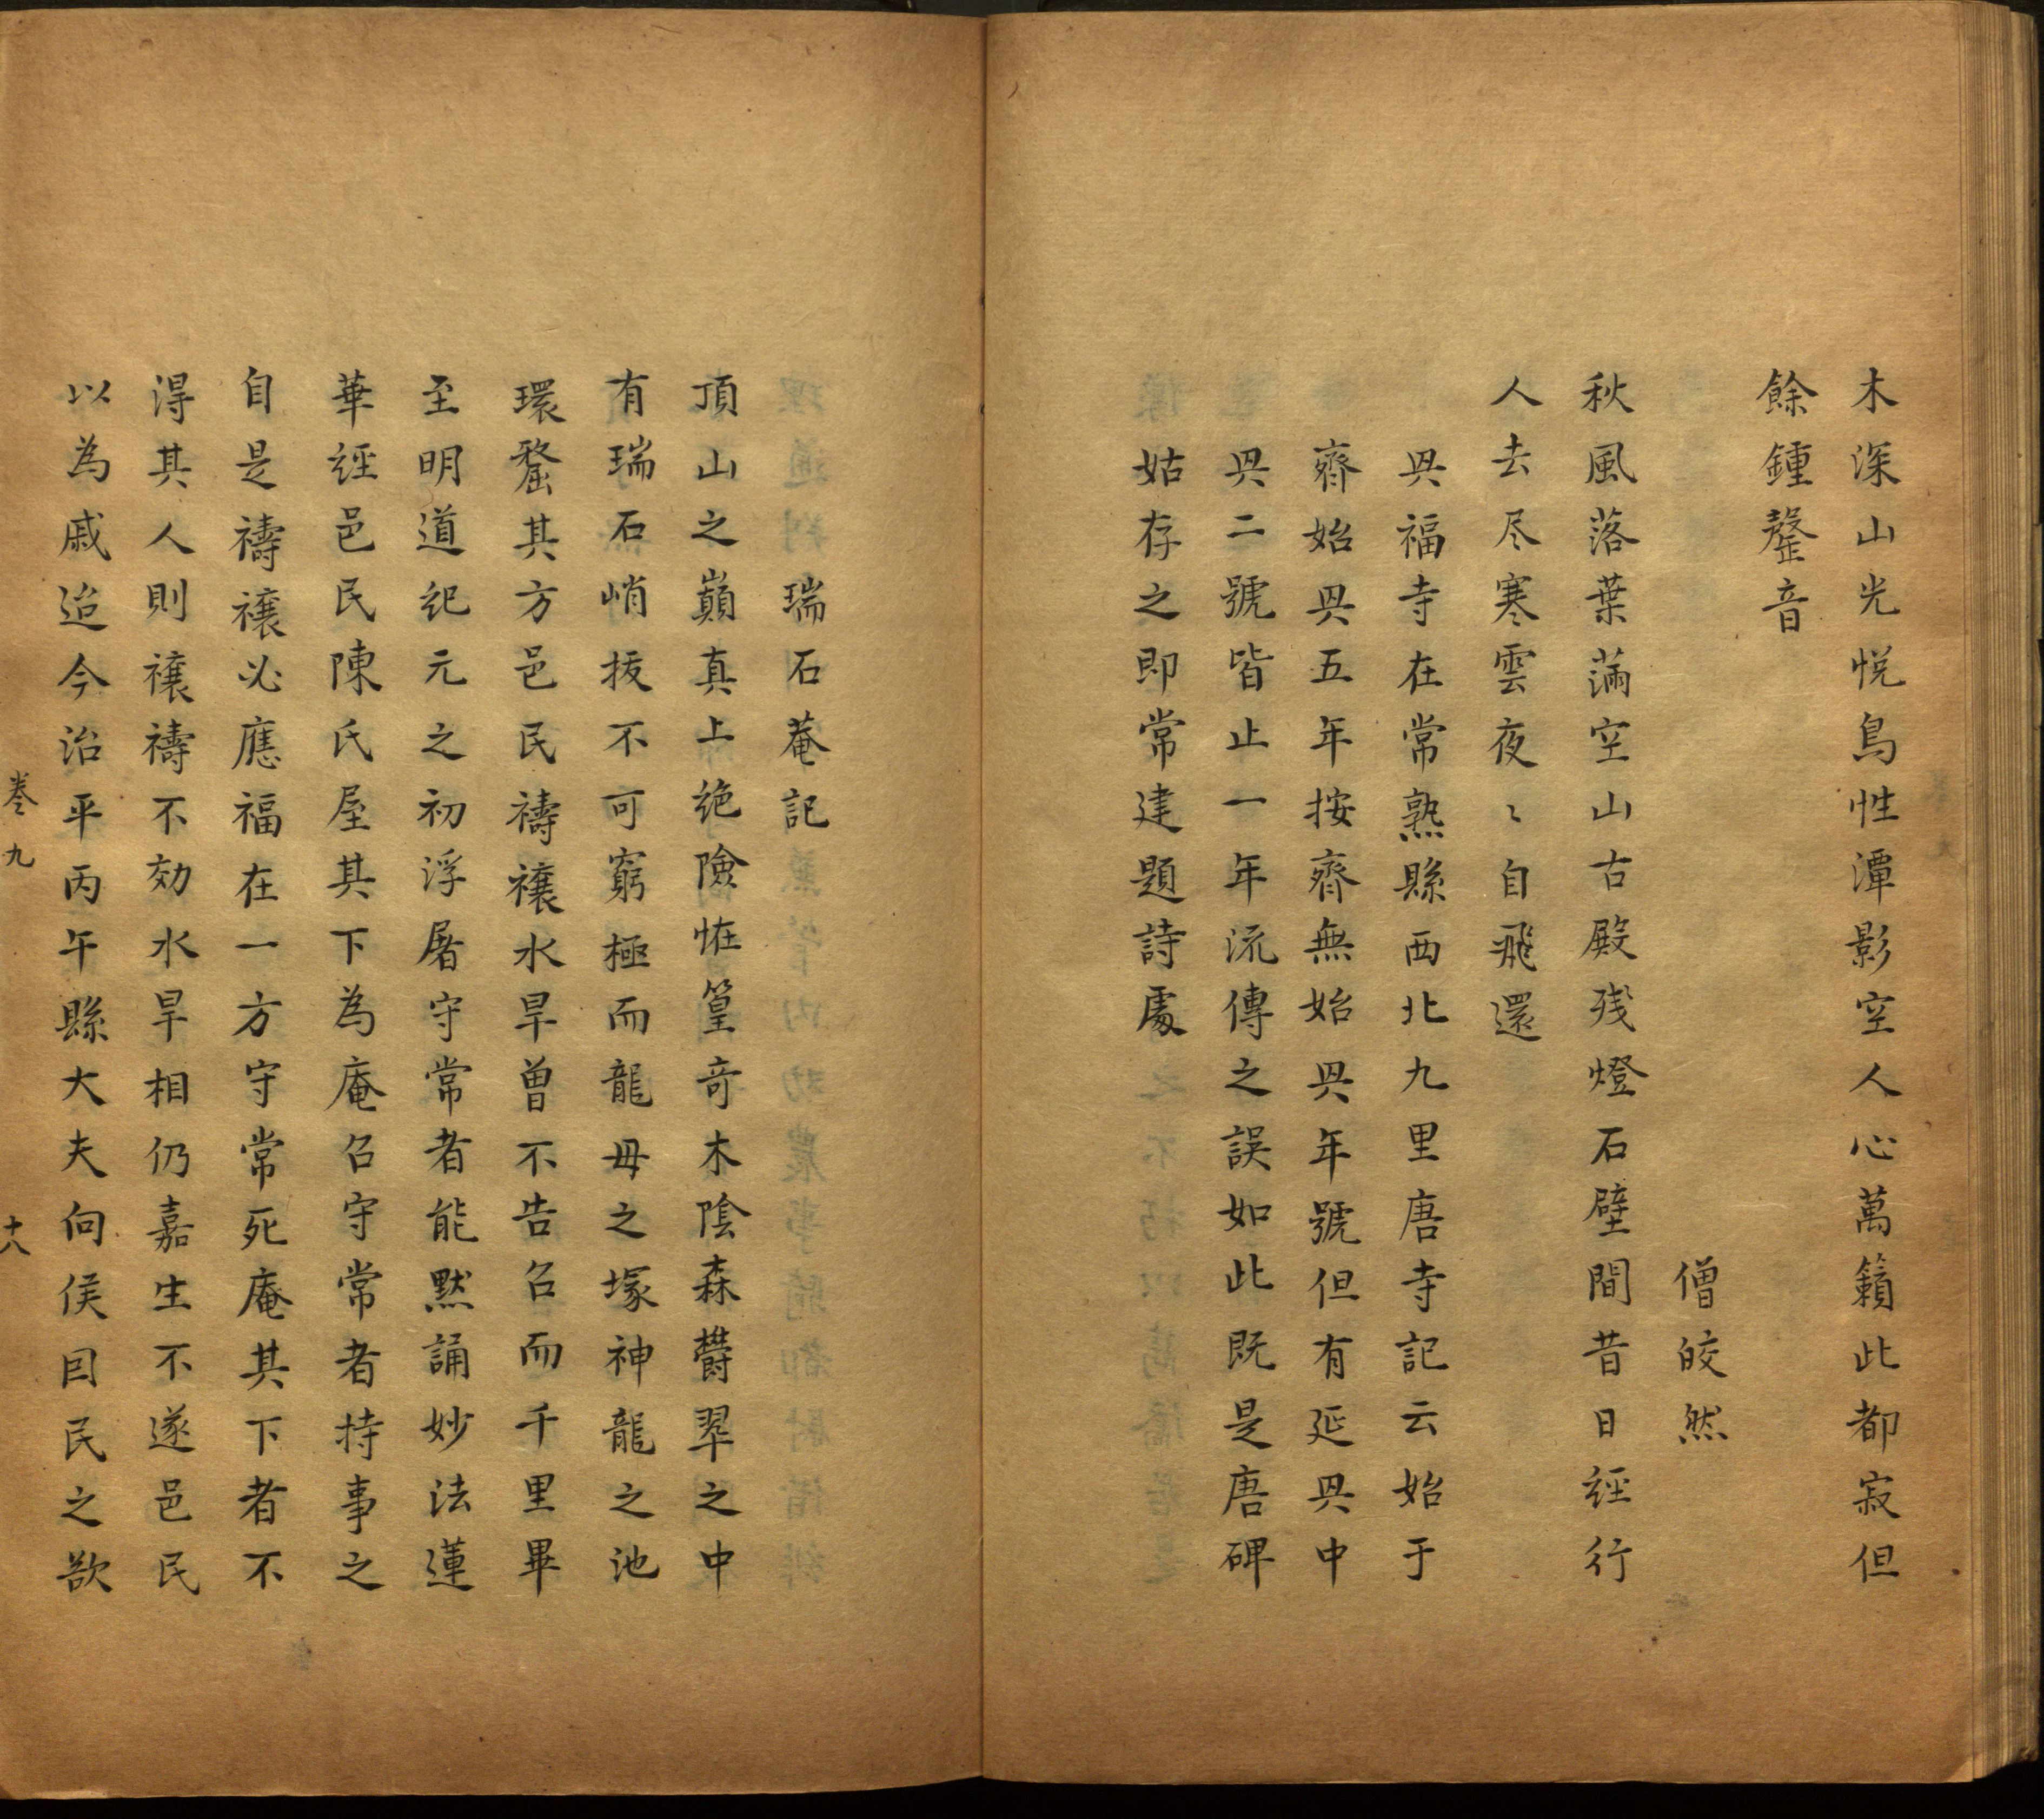 木深山光悅鳥性潭影空人心萬籟此都寂但
餘鍾聲音
僧皎然
秋風落葉滿空山古殿残燈石壁間昔日經行
人去尽寒雲夜〻自飛還
興福寺在常熟縣西北九里唐寺記云始于
齊始興五年按齊無始興年號但有延興中
興二號皆止一年流傳之誤如此既是唐碑
姑存之即常建題詩處
瑞石菴記
頂山之巔真上絶險恠篁奇木陰森欝翠之中
有瑞石峭拔不可窮極而龍毋之塚神龍之池
環其方邑民禱禳水旱曽不告召而千里畢
至明道紀元之初浮屠守常者能默誦妙法蓮
華經邑民陳氏屋其下為庵召守常者持事之
自是禱禳必應福在一方守常死庵其下者不
淂其人則禳禱不効水旱相仍嘉生不遂邑民
以為戚迨今治平丙午縣大夫向侯囙民之欲
卷九
十八